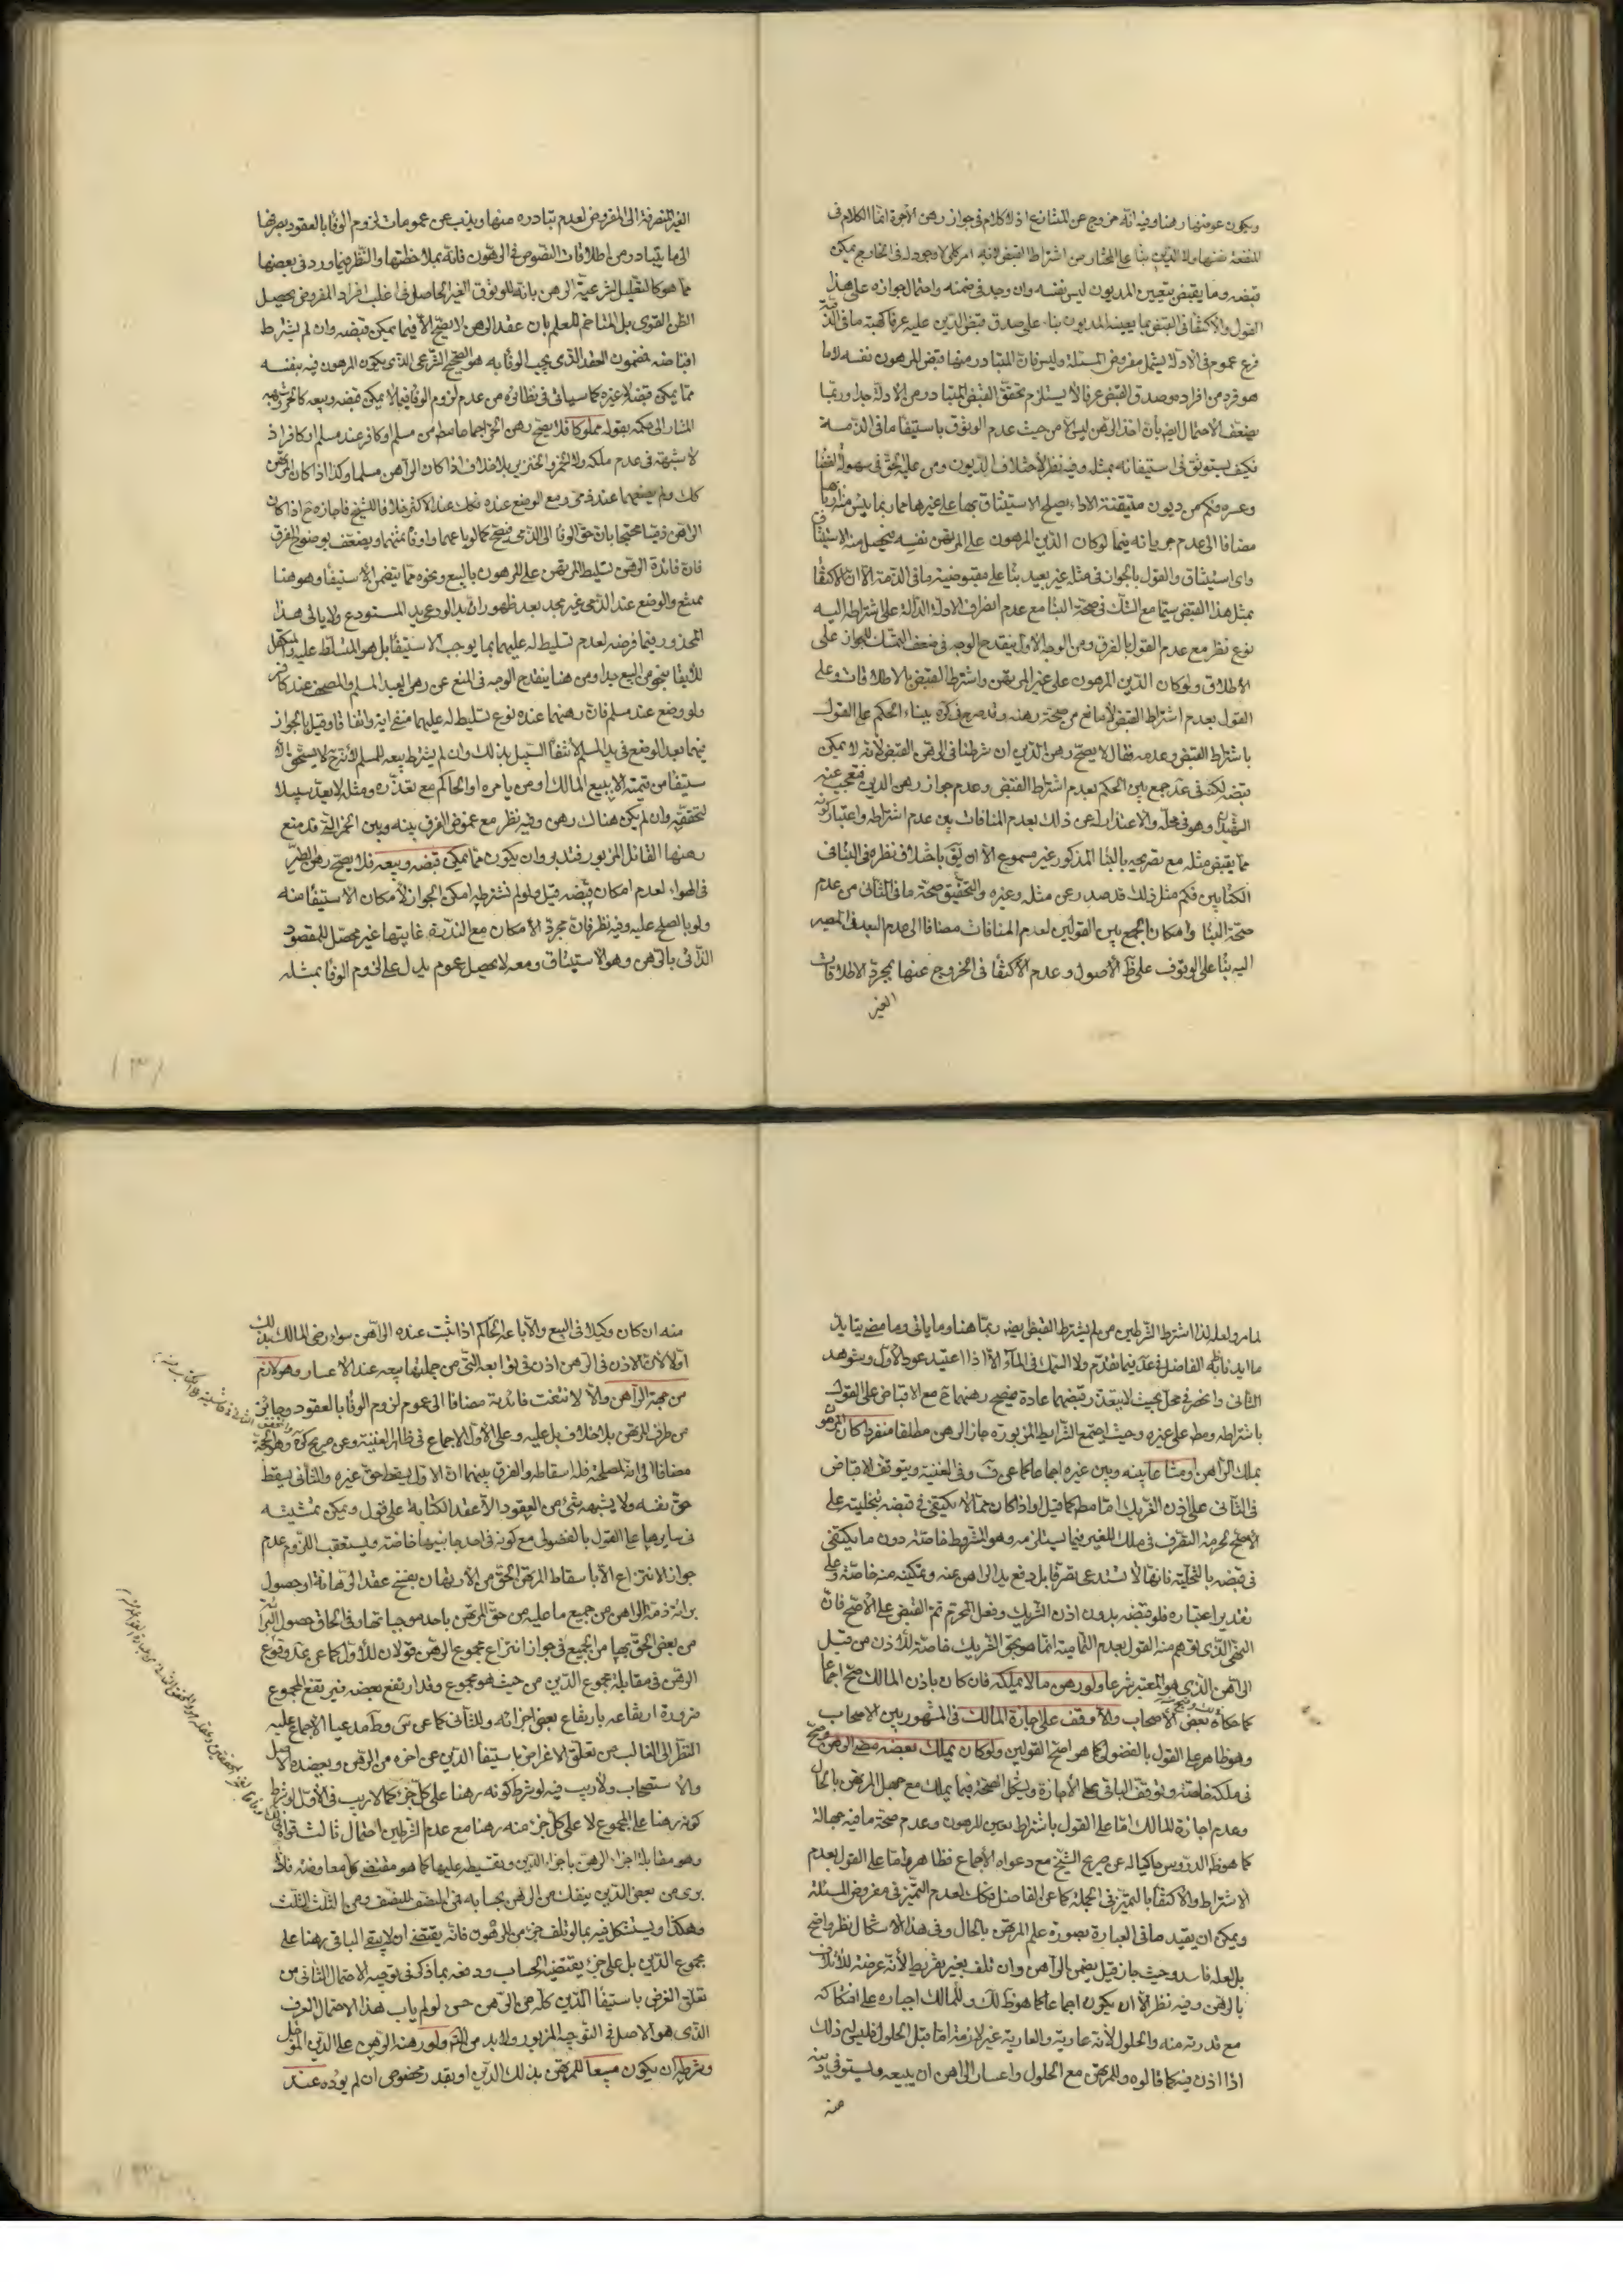 ويكون عوضها رهنا وفيه انه خروج عن المتنازع اذ لا كلام في جواز رهن الأجرة انما الكلام في
المنفعة نفسها ولا الدين بناء على المختار من اشتراط القبض لانه امر كلي لا وجود له في الخارج يمكن
قبضه وما يقبض بتعيين المديون ليس نفسه وان وجد في ضمنه واحتمال جوازه على هذا
القول والاكتفا في القبض بما يعينه المديون بناء على صدق قبض الدين عليه عرفا كهبة ما في الذمة
فرع عموم في الادلة يشمل مفروض المسئلة وليس فان المتبادر منها قبض المرهون نفسه لا ما
هو فرد من افراده وصدق القبض عرفا لا يستلزم تحقق القبض المتبادر من الادلة جدا وربما
يضعف الاحتمال ايضا بان اخذ الرهن ليس الا من حيث عدم الوثوق باستيفا ما في الذمة
فكيف يستوثق في استيفائه بمثله وفيه نظر لاختلاف الديون ومن عليه الحق في سهولة القضا
وعسره فكم من ديون متيقنة الاداء يصلح الاستيثاق بها على غيرها مما ربما يئس منه
مضافا الى عدم جريانه فيما لو كان الدين المرهون على المرتهن نفسه فيحصل منه الاستيفا
واى استيثاق والقول بالجواز في مثله غير بعيد بنا على مقبوضية ما في الذمة الا ان الاكتفا
بمثل هذا القبض سيما مع الشك في صحة البنا مع عدم انصراف الادلة الدالة على اشتراطه اليه
نوع نظر مع عدم القول بالفرق ومن الوجه الاول ينقدح الوجه في ضعف التمسك للجواز على
الاطلاق ولو كان الدين المرهون على غير المرتهن واشترط القبض بالاطلاقات وعلى
القول بعدم اشتراط القبض لا مانع من صحة رهنه وقد صرح في كره ببناء الحكم على القول
باشتراط القبض وعدمه فقال لا يصح رهن الدين ان شرطنا في الرهن القبض لانه لا يمكن
قبضه لكنه في عد جمع بين الحكم بعدم اشتراط القبض وعدم جواز رهن الدين فتعجب عنه
الشهيدان وهو في محله والاعتذار له عن ذلك بعدم المنافات بين عدم اشتراطه واعتبار كونه
مما يقبض مثله مع تصريحه بالبنا المذكور غير مسموع الا ان يق باختلاف نظره في البنا في
الكتابين فكم مثل ذلك قد صدر عن مثله وغيره والتحقيق صحة ما في الثاني من عدم
صحة البنا وامكان الجمع بين القولين لعدم المنافات مضافا الى عدم البعد في المصير
اليه بنا على الوقوف على ظ الأصول وعدم الاكتفا في الخروج عنها بمجرد الاطلاقات
الغير
الغير المنصرفة الى المفروض لعدم تبادره منها ويذب عن عمومات لزوم الوفا بالعقود بصرفها
الى ما يتبادر من اطلاقات النصوص في الرهون فانه بملاحظتها والنظر فيما ورد في بعضها
مما هو كالتعليل لشرعية الرهن بانه للوثوق الغير الحاصل في اغلب افراد المفروض يحصل
الظن القوى بل المتاخم للعلم بان عقد الرهن لا يصح الا فيما يمكن قبضه وان لم يشترط
اقباضه فمضمون العقد الذي يجب الوفا به هو الصحيح الشرعي الذي يكون المرهون فيه بنفسه
مما يمكن قبضه لا غيره كما سيأتي في نظائره من عدم لزوم الوفا فيما لا يمكن قبضه وبيعه كالحر وشبهه
المشار الى حكمه بقوله مملوكا فلا يصح رهن الحر اجماعا مطم من مسلم او كافر عند مسلم او كافر اذ
لا شبهة في عدم ملكه ولا الخمر والخنزير بلا خلاف اذا كان الراهن مسلما وكذا اذا كان المرتهن
كك ولم يضعهما عند ذمي ومع الوضع عنده فكك عند الاكثر خلافا للشيخ فاجازه ح اذا كان
الراهن ذميا محتجا بان حق الوفا الى الذمي فيصح كما لو باعهما واوفا ثمنهما ويضعف بوضوح الفرق
فان فائدة الرهن تسليط المرتهن على المرهون بالبيع ونحوه مما يتضمن الاستيفا وهو هنا
ممتنع والوضع عند الذمي غير مجد بعد ظهور ان يد الودعى يد المستودع ولا ياتي هذا
المحذور فيما فرضه لعدم تسليط له عليهما بما يوجب الاستيفا بل هو المتسلط عليه والمتكفل
للايفا بنحو من البيع جدا ومن هنا ينقدح الوجه في المنع عن رهن العبد المسلم والمصحف عند كافر
ولو وضع عند مسلم فان رهنهما عنده نوع تسليط له عليهما منفي اية واتفاقا وقيل بالجواز
فيهما بعد الوضع في يد المسلم لانتفا السبيل بذلك وان لم يشترط بيعه للمسلم لانه ح لا يستحق الا
ستيفا من قيمته الا ببيع المالك او من يامره او الحاكم مع تعذره ومثله لا يعد سبيلا
لتحققه وان لم يكن هناك رهن وفيه نظر مع غموض الفرق بينه وبين الخمر التي قد منع
رهنها القائل المزبور فتدبر وان يكون مما يمكن قبضه وبيعه فلا يصح رهن الطير
في الهوا لعدم امكان قبضه قيل ولو لم نشترطه امكن الجواز لامكان الاستيفا منه
ولو بالصلح عليه وفيه نظر فان مجرد الامكان مع الندرة غايتها غير محصل للمقصود
الذاتي بالرهن وهو الاستيثاق ومعه لا يحصل عموم يدل على لزوم الوفا بمثله
لما مر ولعله لذا اشترط الشرطين من لم يشترط القبض ايضا ربما هنا وما ياتي وما مضى يتايد
ما ايدنا به الفاضل في عد فيما تقدم ولا السمك في الماء الا اذا اعتيد عود الاول وشوهد
الثاني وانحصر في محل بحيث لا يتعذر قبضهما عادة فيصح رهنهما ح مع الاقباض على القول
باشتراطه ومطم على غيره وحيث اجتمع الشرايط المزبورة جاز الرهن مطلقا منفردا كان المرهون
بملك الراهن او مشاعا بينه وبين غيره اجماعا كما عن ف وفى الغنية ويتوقف الاقباض
في الثاني على اذن الشريك اما مطم كما قيل او اذا كان مما لا يكتفى في قبضه بتخليته على
الاصح لحرمة التصرف في ملك الغير فيما يستلزمه وهو المشروط خاصة دون ما يكتفى
في قبضه بالتخلية فانها لا تستدعى تصرفا بل رفع يد الراهن عنه وتمكينه منه خاصة وعلى
تقدير اعتباره فلو قبضه بدون اذن الشريك وفعل المحرم تم القبض على الاصح فان
النهي الذي توهم منه القول بعدم التمامية انما هو بحق الشريك خاصة للاذن من قبل
الراهن الذي هو المعتبر شرعا ولو رهن ما لا يملكه فان كان باذن المالك صح اجماعا
كما حكاه بعض الأصحاب والا وقف على اجازة المالك في المشهور بين الاصحاب
وهو ظاهر على القول بالفضولى كما هو اصح القولين ولو كان يملك بعضه مضى الرهن وصح
في ملكه خاصة وتوقف الباقي على الاجازة ويشكل الصحة فيما يملك مع جهل المرتهن بالحال
وعدم اجازة المالك اما على القول باشتراط تعيين المرهون وعدم صحة ما فيه جهالة
كما هو ظ الدروس حاكيا له عن صريح الشيخ مع دعواه الاجماع فظاهر واما على القول بعدم
الاشتراط والاكتفا بالتميز في الجملة كما عن الفاضل فكك لعدم التميز في مفروض المسئلة
ويمكن ان يقيد ما في العبارة بصورة علم المرتهن بالحال وفى هذا الاشكال نظر واضح
بل لعله فاسد وحيث جاز قيل يضمن الراهن وان تلف بغير تفريط لأنه عرضة للاتلاف
بالرهن وفيه نظر الا ان يكون اجماعا كما هو ظ لك وللمالك اجباره على افتكاكه
مع قدرته منه والحلول لأنه عارية والعارية غير لازمة اما قبل الحلول فليس له ذلك
اذا اذن فيه كما قالوه وللمرتهن مع الحلول واعسار الراهن ان يبيعه ويستوفى دينه
منه
منه ان كان وكيلا في البيع والا باعه الحاكم اذا ثبت عنده الراهن سواء رضى المالك بذلك
اولا لان الاذن في الرهن اذن في توابعه التي من جملتها بيعه عند الاعسار وهو لازم
من جهة الراهن والا لانتفت فائدته مضافا الى عموم لزوم الوفا بالعقود وجائز
من طرف المرتهن بلا خلاف بل عليه وعلى الاول الاجماع في ظاهر الغنية وعن صريح كره وهو الحجة
مضافا الى انه لمصلحته فله اسقاطه والفرق بينهما ان الاول يسقط حق غيره والثاني يسقط
حق نفسه ولا يشبهه شئ من العقود الا عقد الكتابة على قول ويمكن تمشيته
في سايرها على القول بالفضولى مع كونه في احد جانبيها خاصة ويستعقب اللزوم عدم
جواز الانتزاع الا باسقاط المرتهن الحق من الارتهان بفسخ عقد الرهانة او حصول
برائة ذمة الراهن من جميع ما عليه من حق المرتهن باحد موجباتها وفى الحاق حصول البرائة
من بعض الحق بها من الجميع في جواز انتزاع مجموع الرهن قولان للاول كما عن عد وقوع
الرهن في مقابلة مجموع الدين من حيث هو مجموع وقد ارتفع بعضه فيرتفع المجموع
ضرورة ارتفاعه بارتفاع بعض اجزائه وللثاني كما عن س وط مدعيا الاجماع عليه
النظر الى الغالب من تعلق الاغراض باستيفا الدين عن اخره من الرهن ويعضده الاصل
والاستصحاب ولا ريب فيه لو شرط كونه رهنا على كل جزء كما لا ريب في الاول لو شرط
كونه رهنا على المجموع لا على كل جزء منه رهنا مع عدم الشرطين احتمال ثالث
وهو مقابلة اجزاء الرهن باجزاء الدين وتقسيطه عليها كما هو مقتضى كل معاوضة فاذا
برى من بعض الدين ينفك من الرهن بحسابه فمن النصف النصف ومن الثلث الثلث
وهكذا ويستشكل فيه بما لو تلف جزء من المرهون فانه يقتضى ان لا يبقى الباقي رهنا على
مجموع الدين بل على جزء يقتضيه الحساب ودفعه بما ذكر في توجيه الاحتمال الثاني من
تعلق الغرض باستيفا الدين كله من الرهن حسن لو لم ياب هذا الاحتمال العرف
الذي هو الاصل في التوجيه المزبور ولا بد من ولو رهنه الرهن على الدين المؤجل
وشرط ان يكون مبيعا للمرتهن بذلك الدين او بقدر مخصوص ان لم يؤده عند